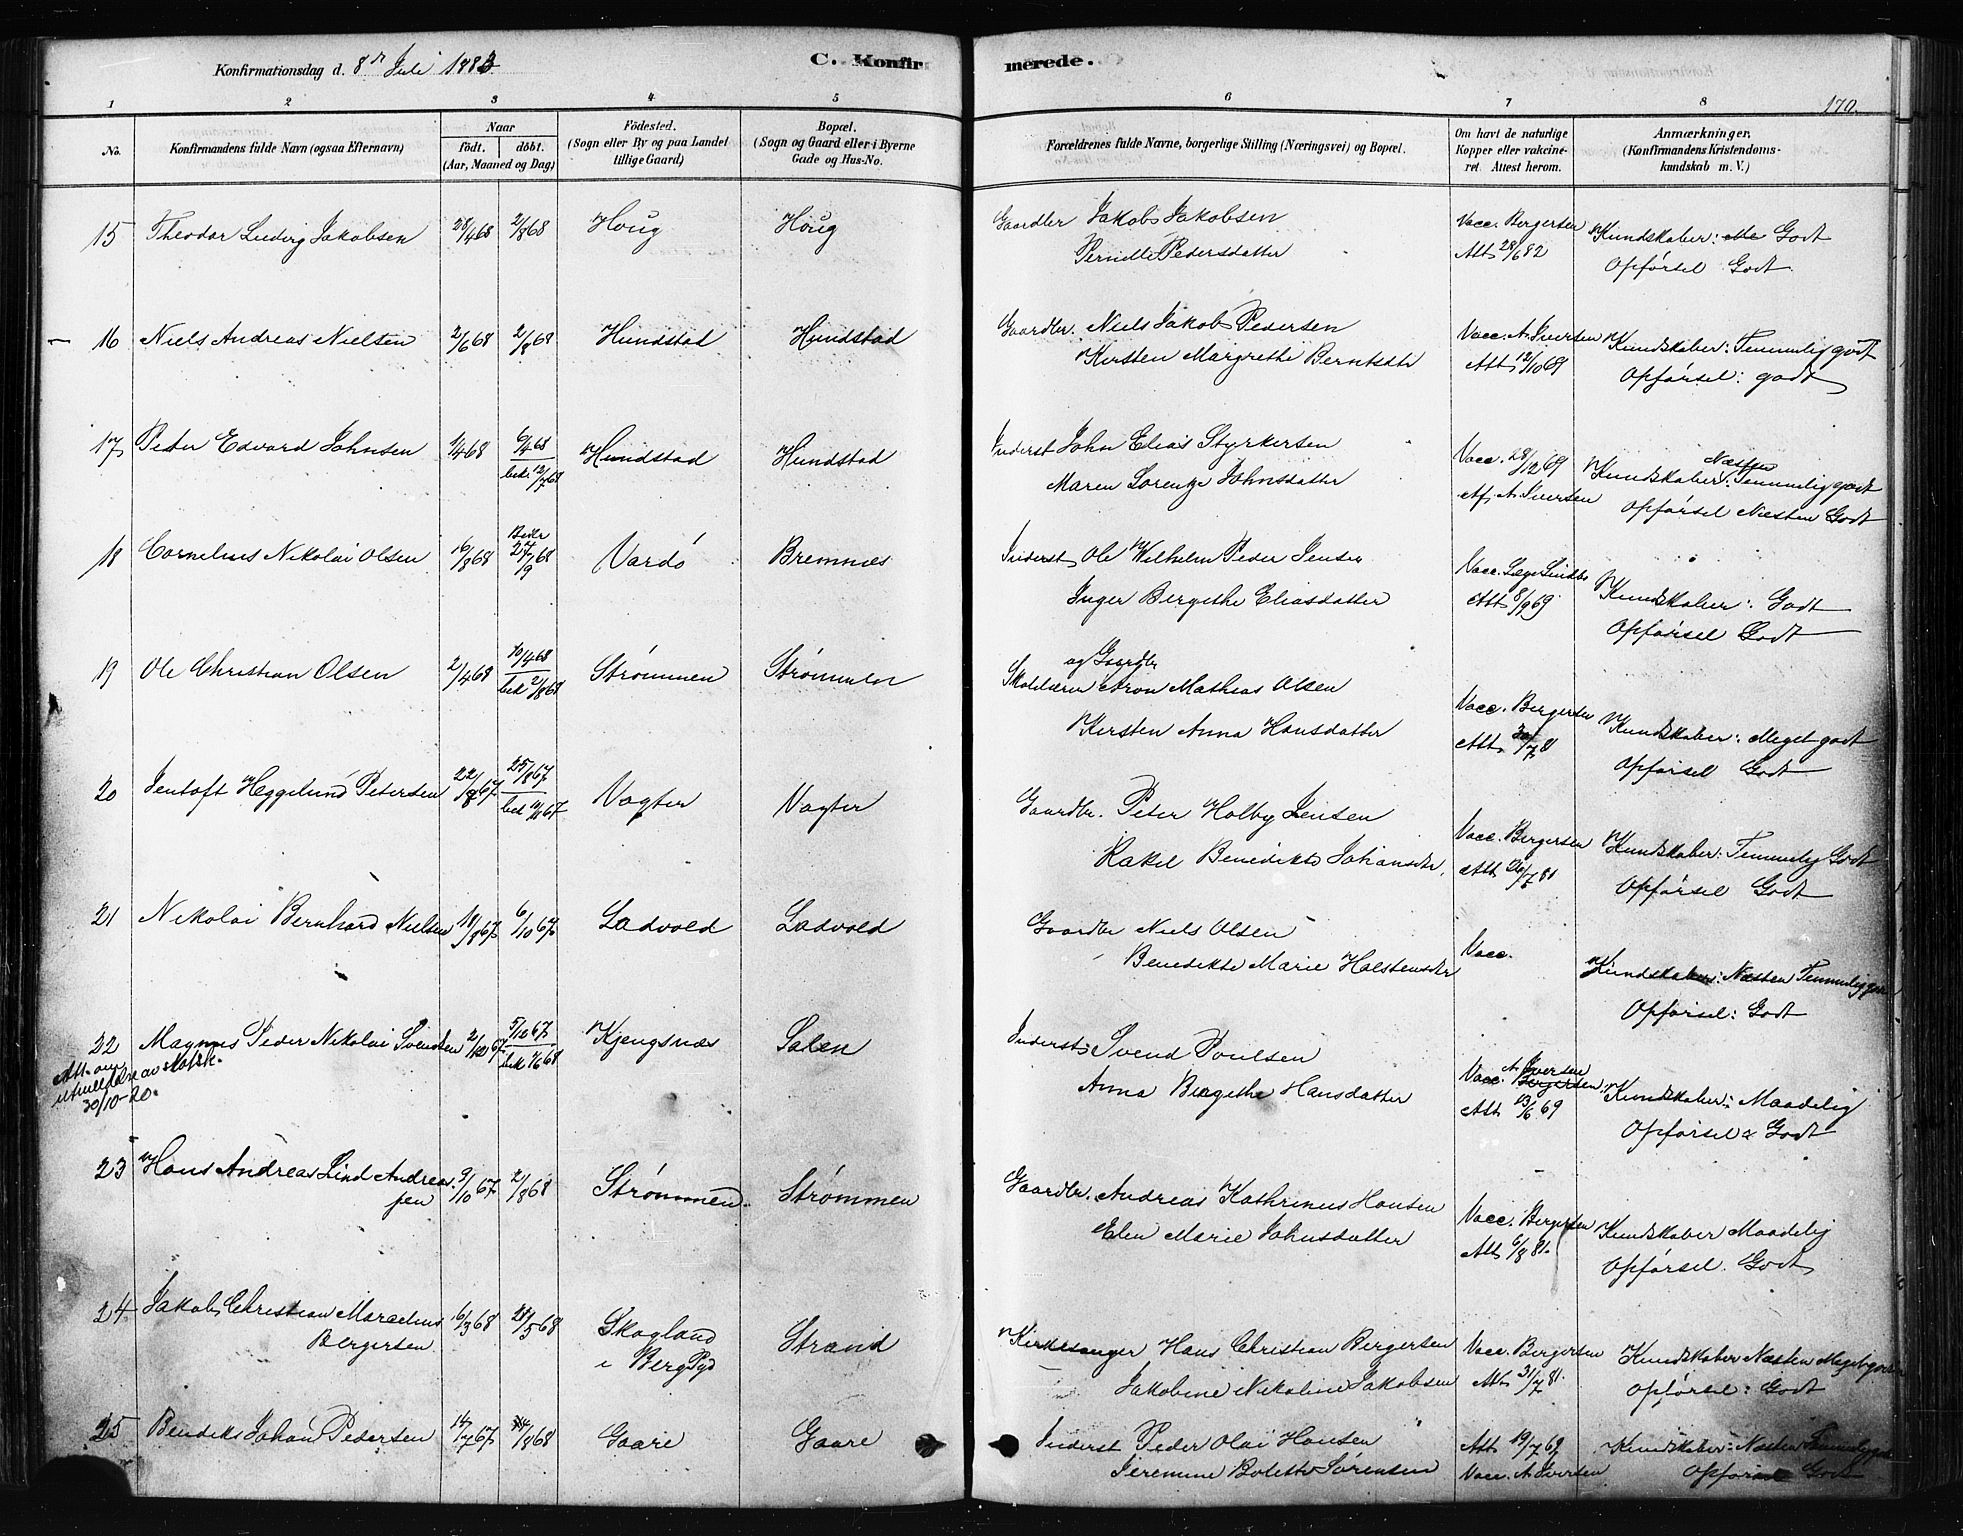 Konfirmationsdag d. 8de Juli 1883
C. Konfir
merede.
170.
1 2 3 4 5 6 7 8
No.
Konfirmandens fulde Navn (ogsaa Efternavn)
Naar
födt. döbt.
(Aar, Maaned og Dag)
Födested.
(Sogn eller By og paa Landet
tillige Gaard)
Bopæl.
(Sogn og Gaard eller i Byerne
Gade og Hus-No.
Forældrenes fulde Navne, borgerlige Stilling (Næringsvei) og Bopæl.
Om havt de naturlige
Kopper eller vakcine-
ret Attest herom.
Anmærkninger.
(Konfirmandens Kristendoms-
kundskab m. V.)
15 Theodor Ludvig Jakobsen 28/4 68 2/8 68 Houg Houg
Gaardbr Jakob Jakobsen
Pernille Pedersdatter
Vacc. Bergersen
Att 28/6 82
Kundskaber: Godt
Opførsel Godt
16 Niels Andreas Nielsen 2/6 68 2/8 68 Hundstad Hundstad
Gaardbr. Niels Jakob Pedersen
Kirsten Margrethe Berntsdtr
Vacc. A. Iversen
Att 12/10 69
Kundskaber: Temmelig godt
Opførsel: godt
17 Peter Edvard Johnsen 1/4 68 6/4 68 Hundstad Hundstad
bek. 12/7 68
Inderst John Elias Styrkersen
Maren Lorentze Johnsdatter
Vacc. 28/12 69
Af. A. Iversen
Næsten
Kundskaber: Temmelig godt
Opførsel Næsten Godt
18 Cornelius Nikolai Olsen 16/8 68 27/9 68 Vardö Bremnæs
Inderst Ole Wilhelm Peder Jensen
Inger Bergethe Eliasdatter
Vacc. Læge Lindbo
Att 8/9 69
Kundskaber: Godt
Opførsel Godt
19 Ole Christian Olsen 2/4 68 10/4 68 Strømmen Strømmen
bek 2/8 68
og Gaardbr
Skolelærer Aron Mathias Olsen
Kirsten Anna Hansdatter
Vacc. Bergersen
Att 30/7 81
Kundskaber: Meget godt
Opførsel Godt
20 Jentoft Heggelund Petersen 22/8 67 25/8 67 Vagter Vagter
Gaardbr. Peter Holby Jensen
Rakel Benedikte Johansdtr.
Vacc. Bergersen
Kundskaber: Temmelig Godt
Opførsel Godt
21 Nikolai Bernhard Nielsen 18/8 67 6/10 67 Ladvold Ladvold
Gaardbr Niels Olsen
Benedikte Marie Holstensdtr
Vacc.
Kundskaber: Næsten Temmelig godt
Opførsel: Godt
22 Magnus Peder Nikolai Svendsen 5/10 67 Kjengsnæs Salen
bek 1/6 68
Att. om
av Norsk.
30/10-20.
Inderst Svend Poulsen
Anna Bergethe Hansdatter
A. Iversen
Vacc. Bergersen.
Att 13/6 69
Kundskaber: Maadelig
Opførsel Godt
23 Hans Andreas Lind Andreas- 9/10 67 2/8 68 Strømmen Strømmen
sen
Gaardbr. Andreas Kathrinus Hansen
Elen Marie Johnsdatter
Vacc. Bergersen
Att 6/8 81.
Kundskaber Maadelig
Opførsel. Godt
24 Jakob Christian Marselius 16/3 68 28/5 68 Skogland Strand
Bergersen i Berg Pgd
Kirkesanger Hans Christian Bergersen
Jakobine Nikoline Jakobsen
Vacc. Bergersen
Att 31/7 81.
Kundskaber Næsten Meget godt
Opførsel: Godt
25 Bendiks Johan Pedersen 14/7 67 Gaare Gaare
Inderst Peder Olai Hansen
Jeremine Bolette Sørensen
Att 19/7 69
Vacc. A. Iversen
Kundskaber: Næsten Temmelig godt
Opførsel Godt